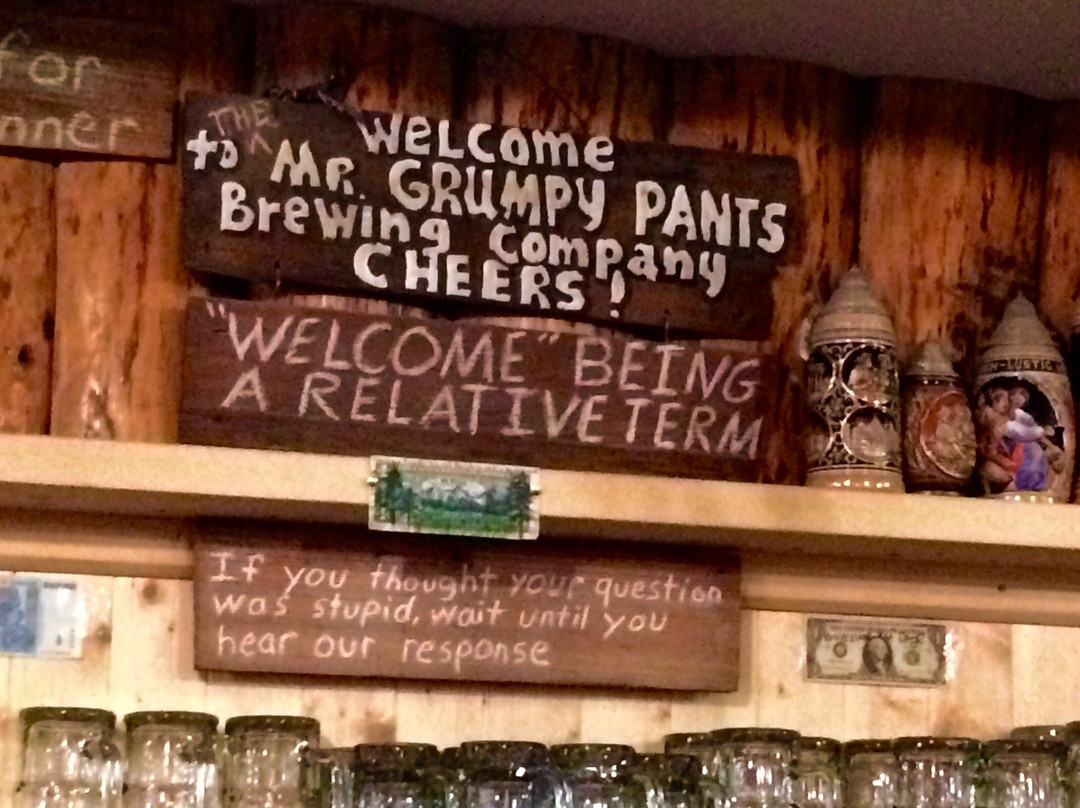 for
nner
Welcome
to THE Mr. GRUMPY PANTS
Brewing Company
CHEERS!
"WELCOME" BEING
A RELATIVE TERM
If you thought your question
was stupid, wait until you
hear our response